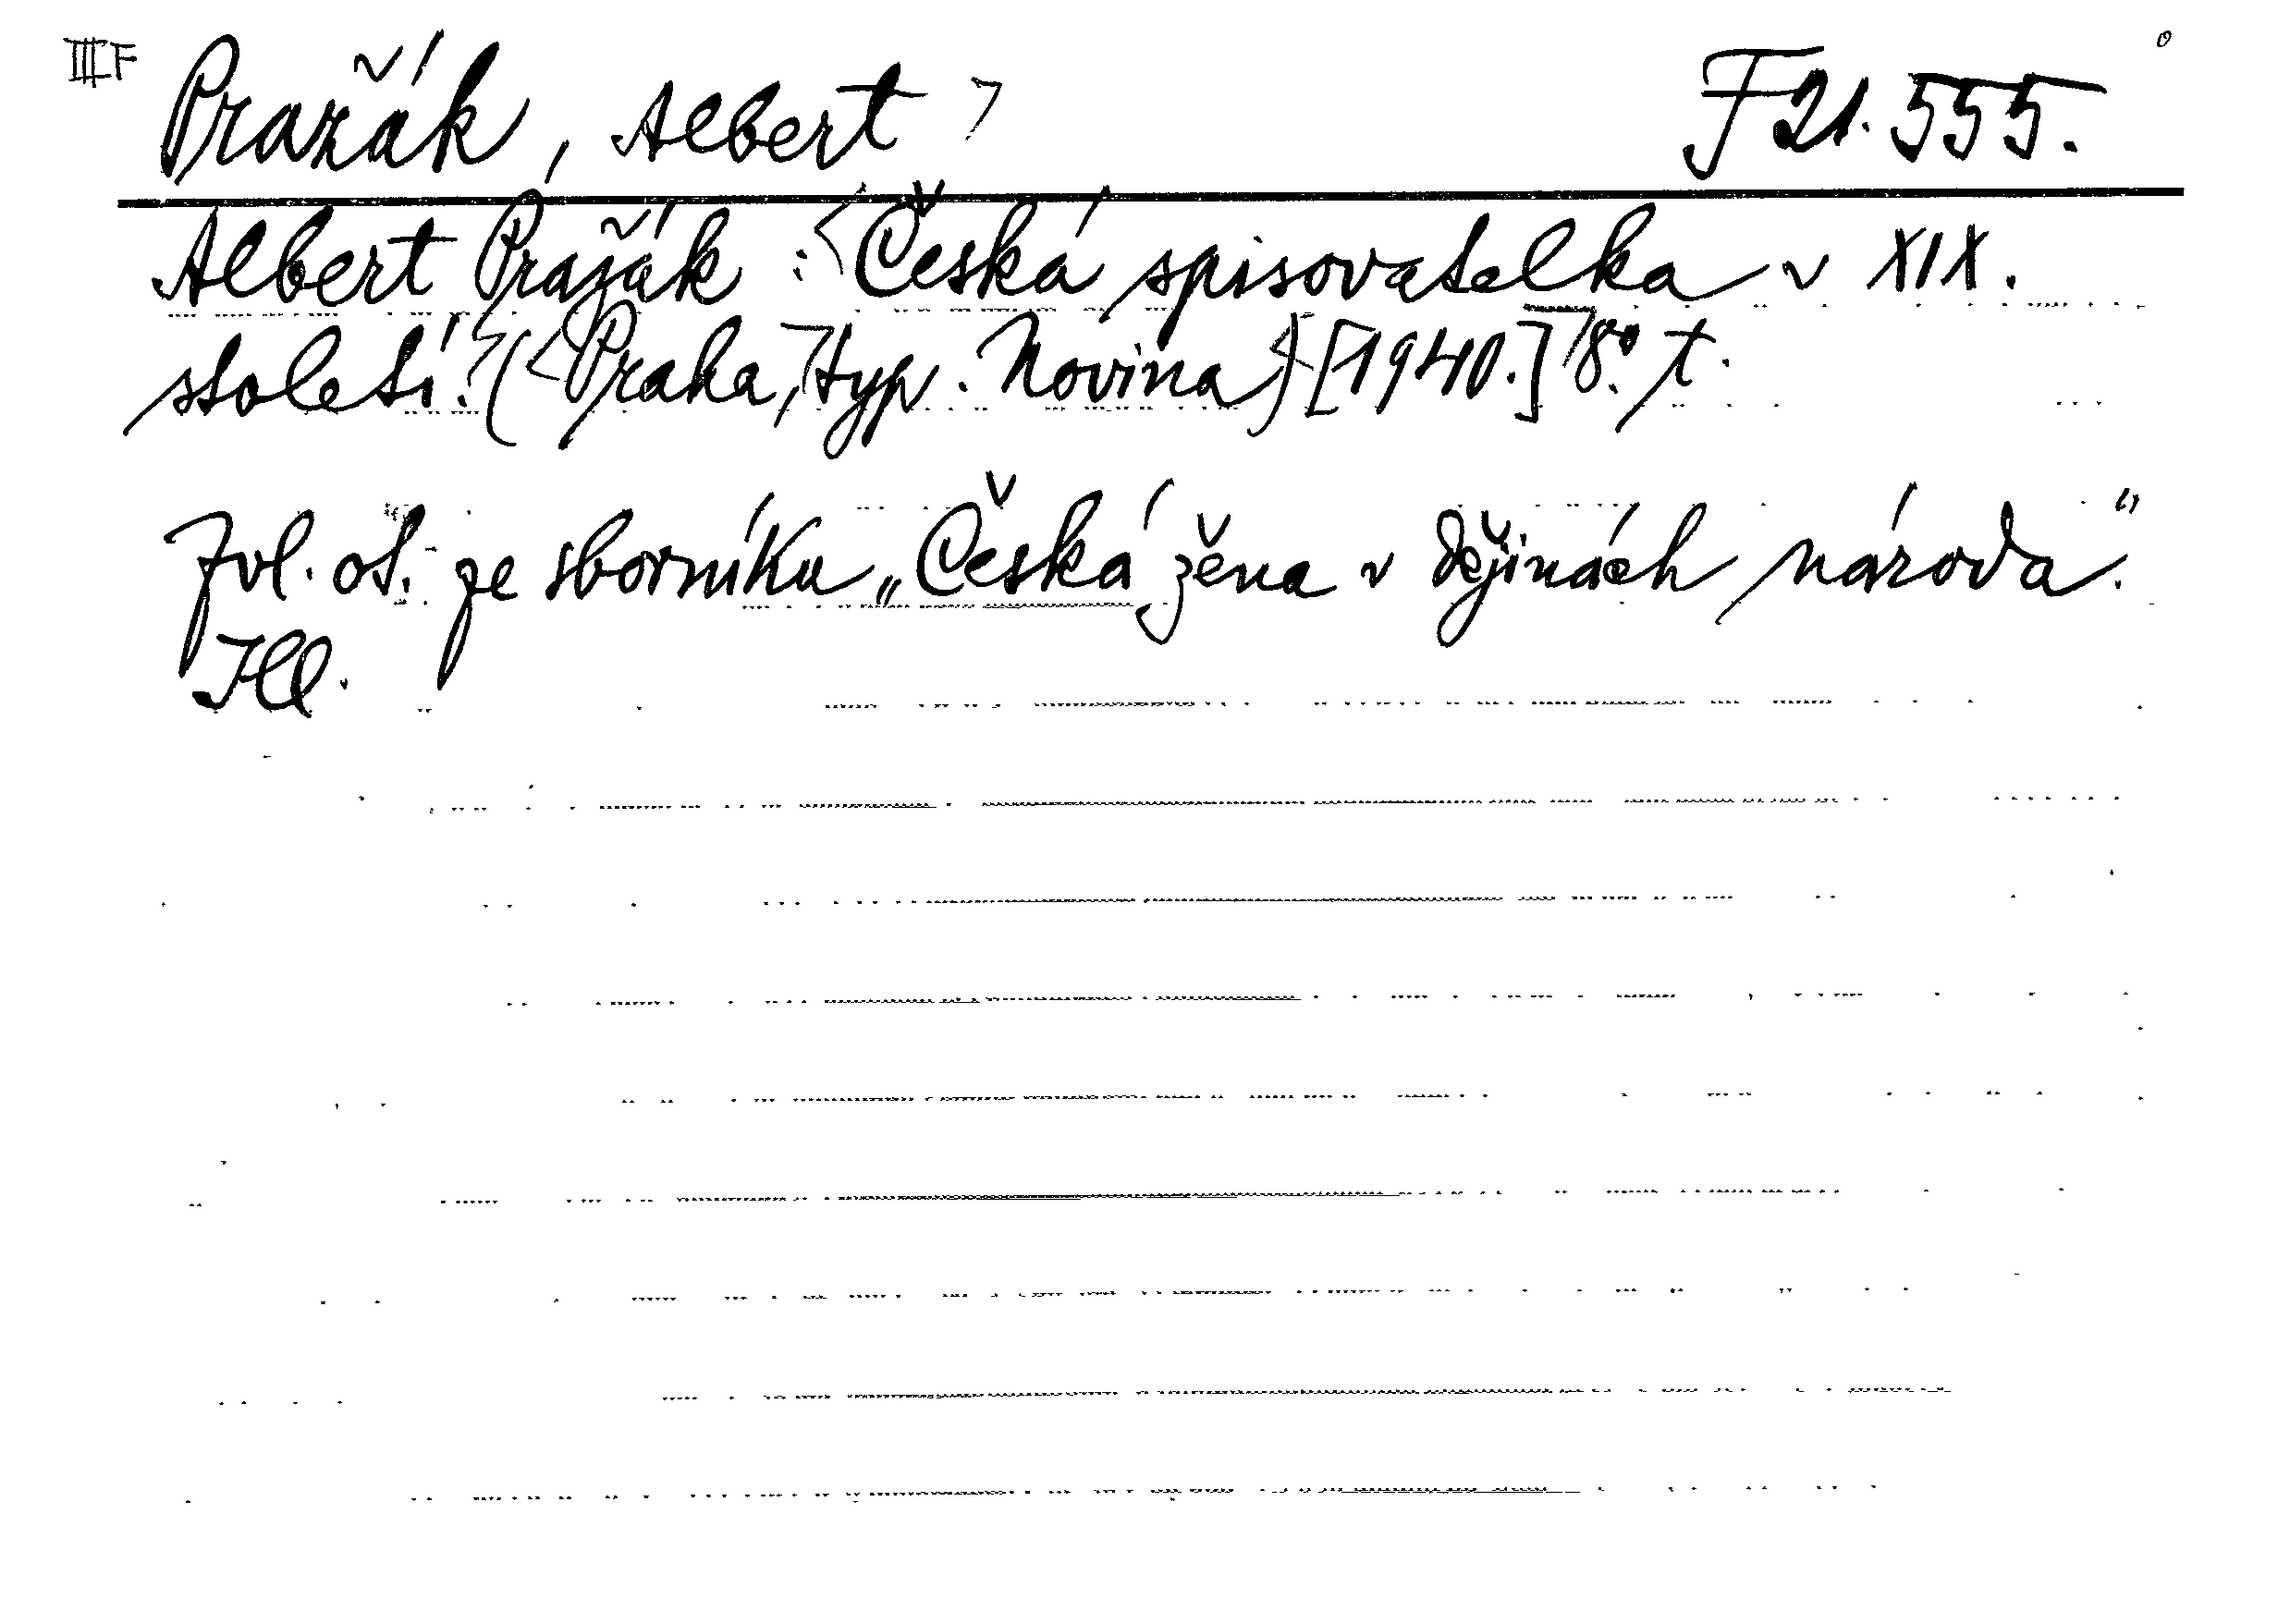 IIIF Pražák, Albert F 21.555. o
Albert Pražák: Česká spisovatelka v XIX.
století. (Praha, typ. Novina) [1940.] 8.° t.
Zvl. ot. ze sborníku „Česká žena v dějinách národa."
Ill.